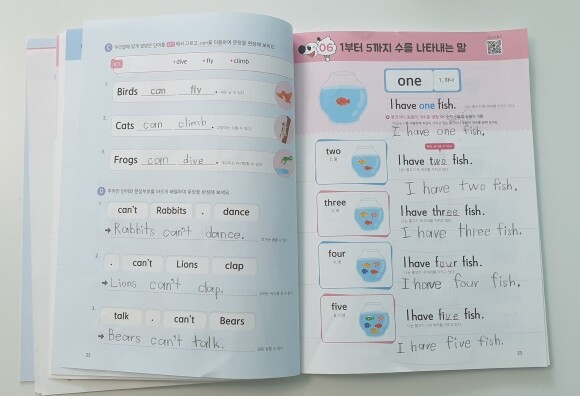 C
보기
• dive • fly • climb
1.
Birds can fly.
2.
Cats can climb.
3.
Frogs can dive.
D
can't Rabbits . dance
→ Rabbits can't dance.
2.
. can't Lions clap
→ Lions can't clap.
3.
talk . can't Bears
→ Bears can't talk.
22
06 1부터 5까지 수를 나타내는 말
one 1, 하나
I have one fish.
I have one fish.
two
2, 둘
I have two fish.
I have two fish.
three
3, 셋
I have three fish.
I have three fish.
four
4, 넷
I have four fish.
I have four fish.
five
5, 다섯
I have five fish.
I have five fish.
23